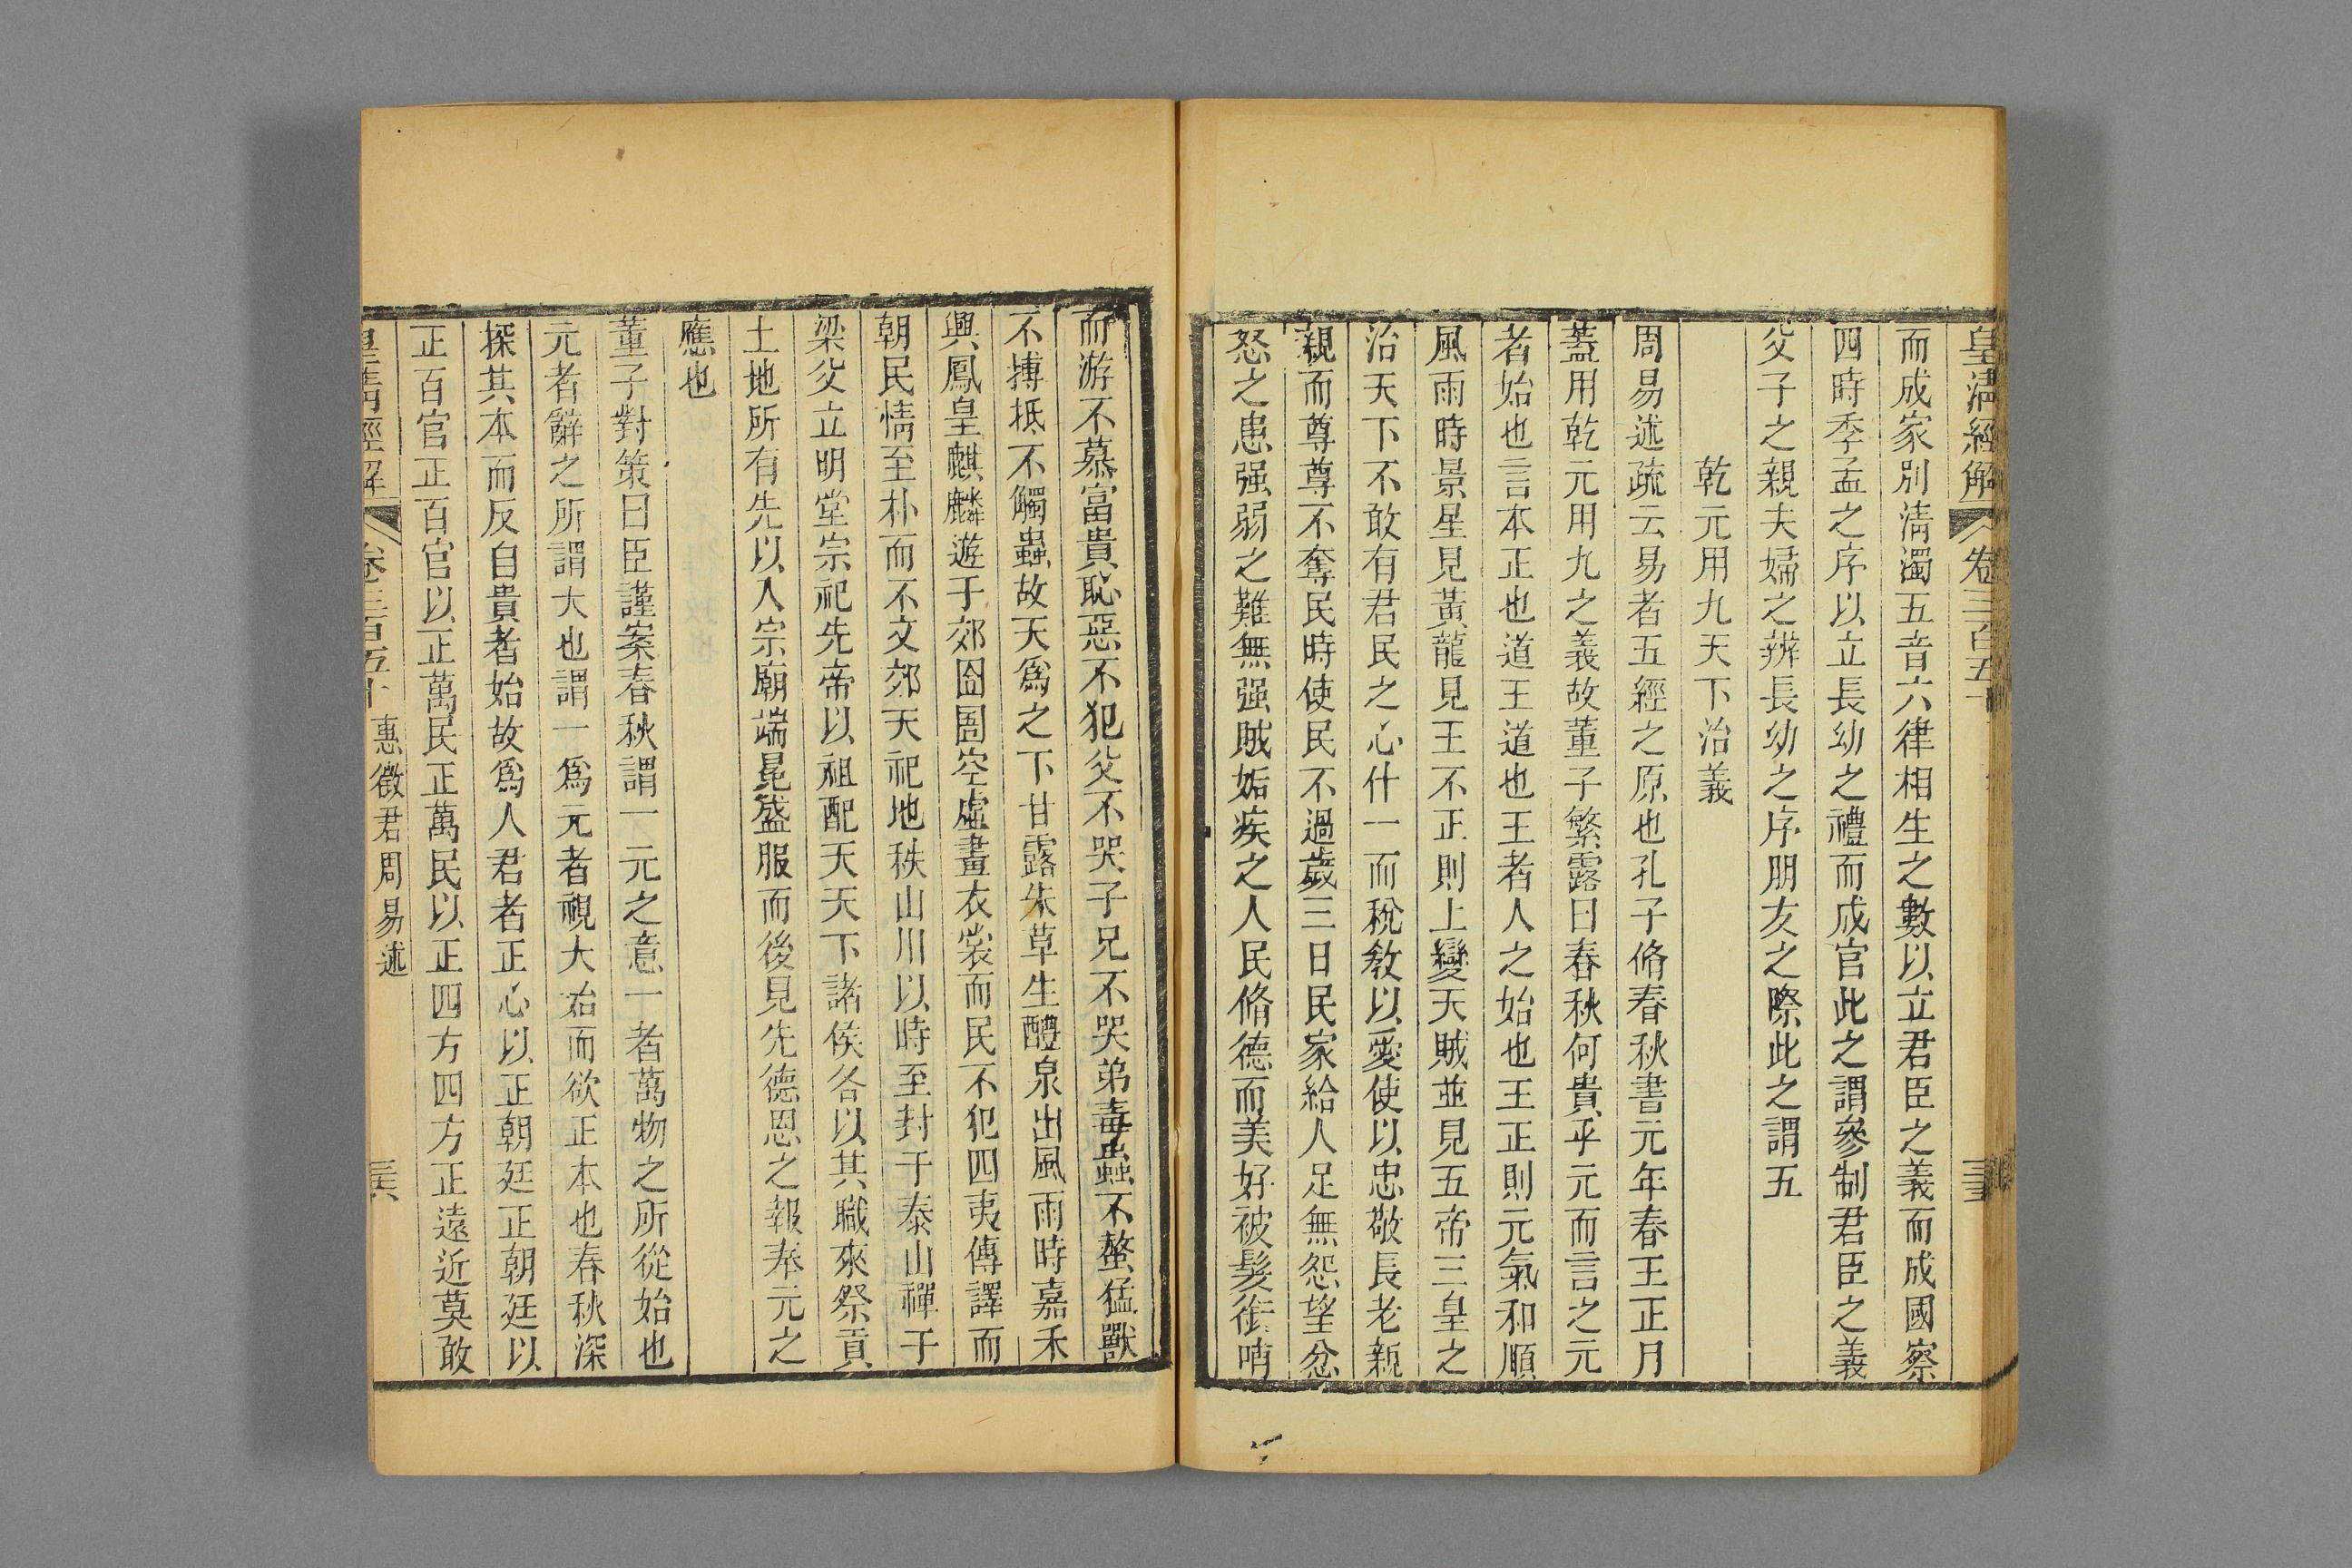 皇清經解 卷三百五十
而成家別清濁五音六律相生之數以立君臣之義而成國察
四時季孟之序以立長幼之禮而成官此之謂參制君臣之義
父子之親夫婦之辨長幼之序朋友之際此之謂五
乾元用九天下治義
周易述疏云易者五經之原也孔子脩春秋書元年春王正月
蓋用乾元用九之義故董子繁露曰春秋何貴乎元而言之元
者始也言本正也道王道也王者人之始也王正則元氣和順
風雨時景星見黃龍見王不正則上變天賊並見五帝三皇之
治天下不敢有君民之心什一而稅敎以愛使以忠敬長老親
親而尊尊不奪民時使民不過歲三日民家給人足無怨望忿
怒之患强弱之難無强賊妬疾之人民脩德而美好被髮銜哺
而游不慕富貴恥惡不犯父不哭子兄不哭弟毒蟲不螫猛獸
不搏抵不觸蟲故天爲之下甘露朱草生醴泉出風雨時嘉禾
興鳳皇麒麟遊于郊囹圄空虛畫衣裳而民不犯四夷傳譯而
朝民情至朴而不文郊天祀地秩山川以時至封于泰山禪于
梁父立明堂宗祀先帝以祖配天天下諸侯各以其職來祭貢
土地所有先以入宗廟端冕盛服而後見先德恩之報奉元之
應也
董子對策曰臣謹案春秋謂一元之意一者萬物之所從始也
元者辭之所謂大也謂一爲元者視大始而欲正本也春秋深
探其本而反自貴者始故爲人君者正心以正朝廷正朝廷以
正百官正百官以正萬民正萬民以正四方四方正遠近莫敢
皇淸經解 卷三百五十 惠徵君周易述 三六